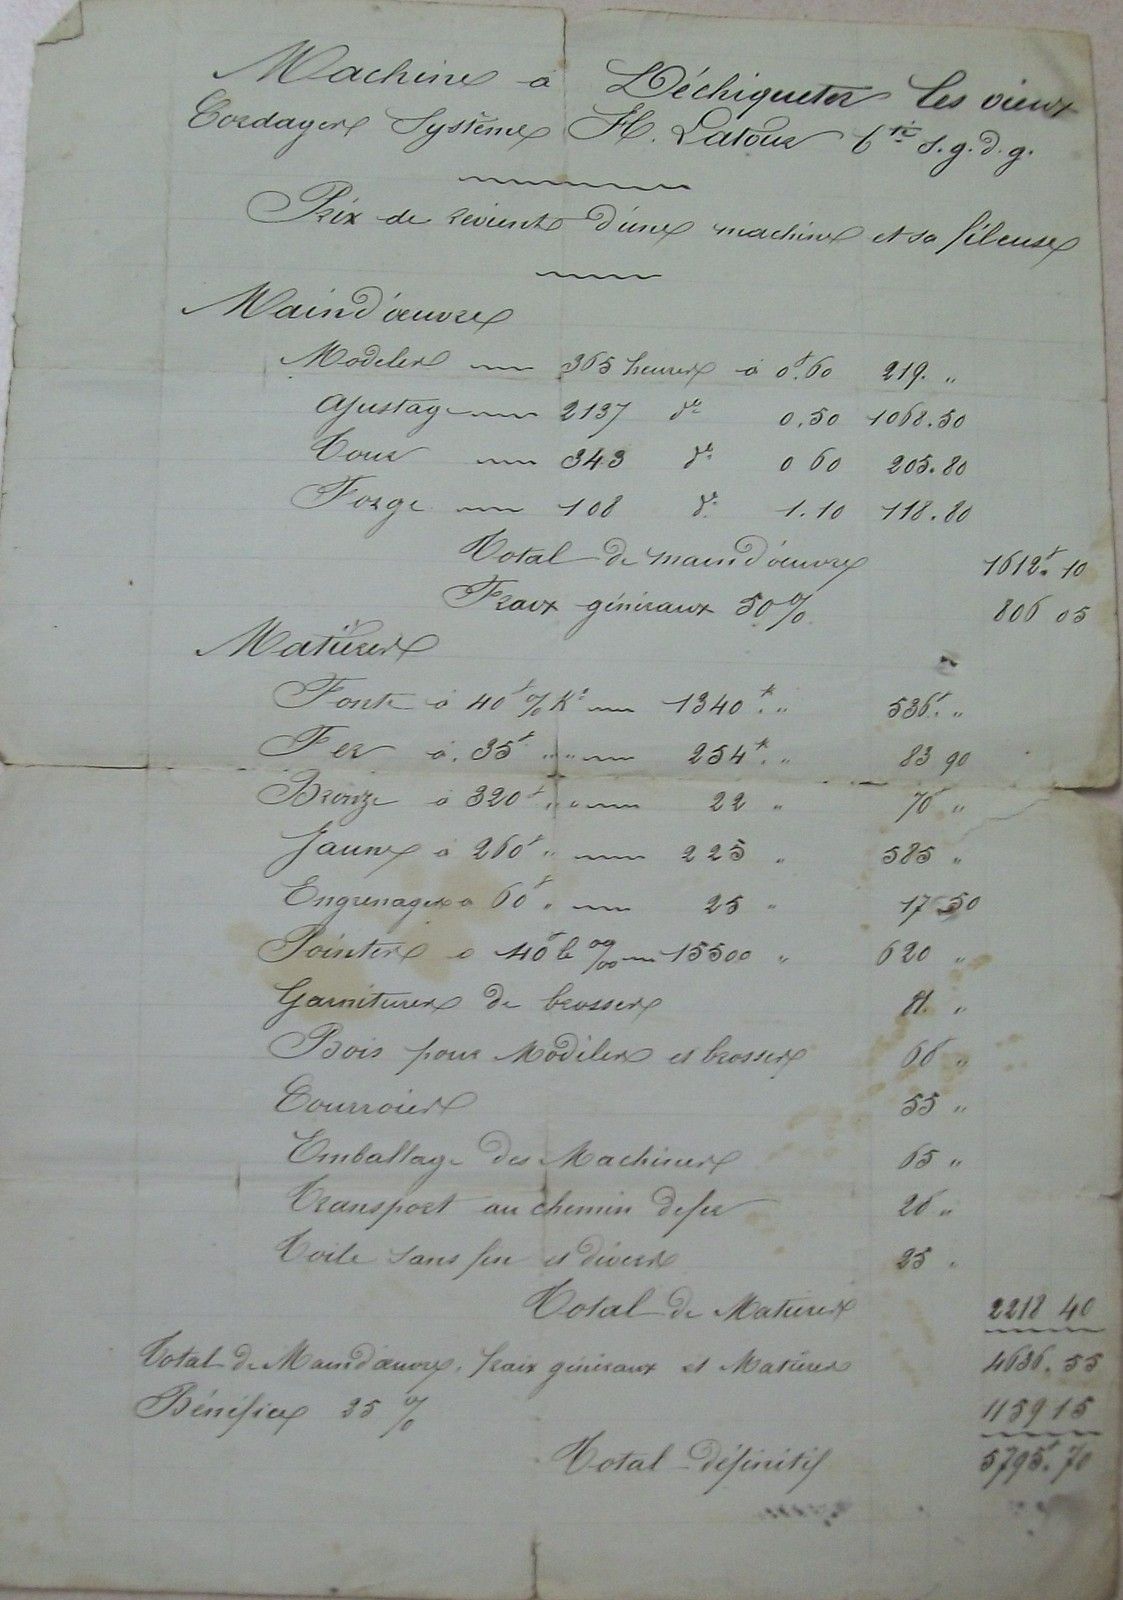 Machine à Déchiqueter les vieux
Cordages Système H. Latour bté s.g.d.g.
Prix de revient d'une machine et sa fileuse
Main d'œuvre
Modèles 365 heures à 0f.60 219. "
Ajustage 2137 do 0.50 1068.50
Tour 343 do 0 60 205.80
Forge 108 do 1.10 118.80
Total de main d'œuvre 1612f. 10
Fraix généraux 50 % 806 05
Matières
Fonte à 40f % K° 1340k. " 536f. "
Fer à 35f " " 254k. " 83 90
Bronze à 320f " " 22 " 70 "
Jaune à 260f " 225 " 585 "
Engrenages à 60f " 25 " 17 50
Pointes à 40f le 15500 " 620 "
Garnitures de brosses "
Bois pour Modèles et brosses 66 "
Courroies 55 "
Emballage des Machines 65 "
Transport au chemin de fer 26 "
Toile sans fin et divers 25 "
Total de Matières 2218 40
Total de Main d'œuvre, fraix généraux et Matières 4636. 55
Bénéfice 25 % 1159 15
Total définitif 5795f. 70